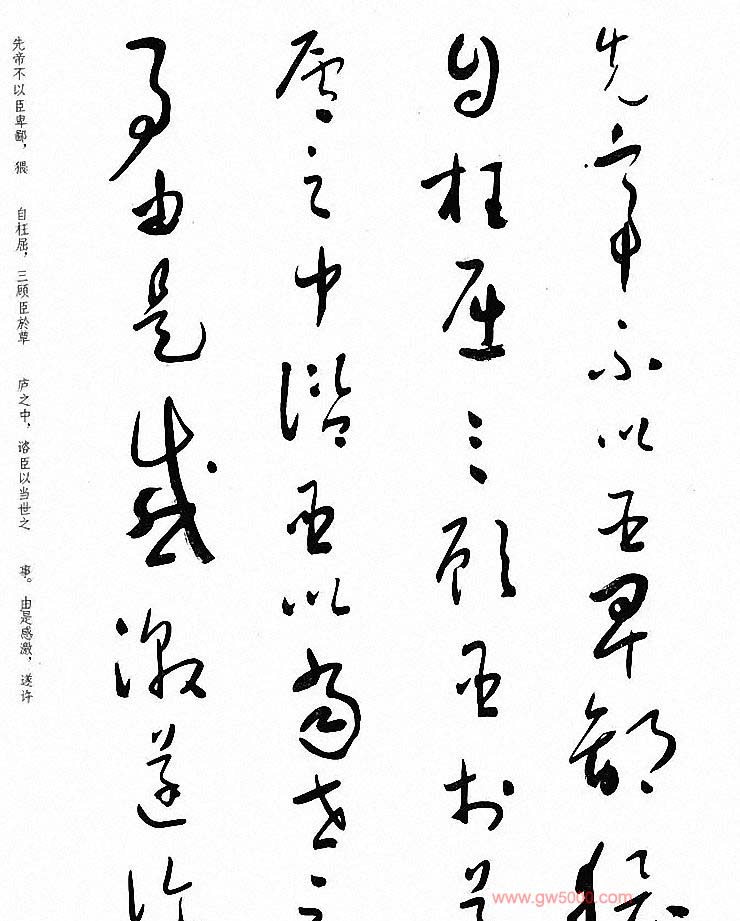 先帝不以臣卑鄙猥
自枉屈三顾臣於草
庐之中谘臣以当世之
事由是感激遂许
先帝不以臣卑鄙，猥 自枉屈，三顾臣於草 庐之中，谘臣以当世之 事。由是感激，遂许
www.gw5000.com